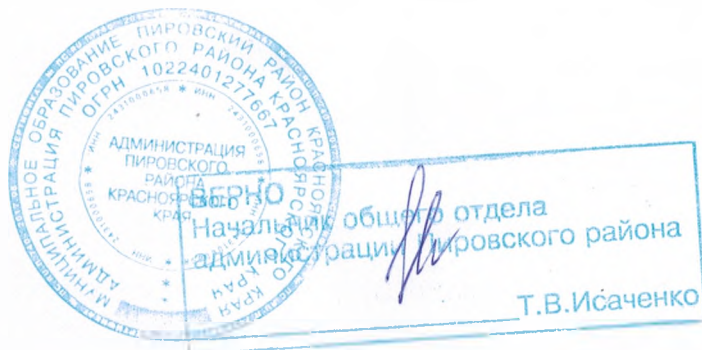 МУНИЦИПАЛЬНОЕ ОБРАЗОВАНИЕ ПИРОВСКИЙ РАЙОН КРАСНОЯРСКОГО КРАЯ
АДМИНИСТРАЦИЯ ПИРОВСКОГО РАЙОНА КРАСНОЯРСКОГО КРАЯ
ОГРН 1022401277667
* ИНН 2431000658 * ИНН 2431000658
АДМИНИСТРАЦИЯ
ПИРОВСКОГО
РАЙОНА
КРАСНОЯРСКОГО
КРАЯ
ВЕРНО
Начальник общего отдела
администрации Пировского района
Т.В.Исаченко